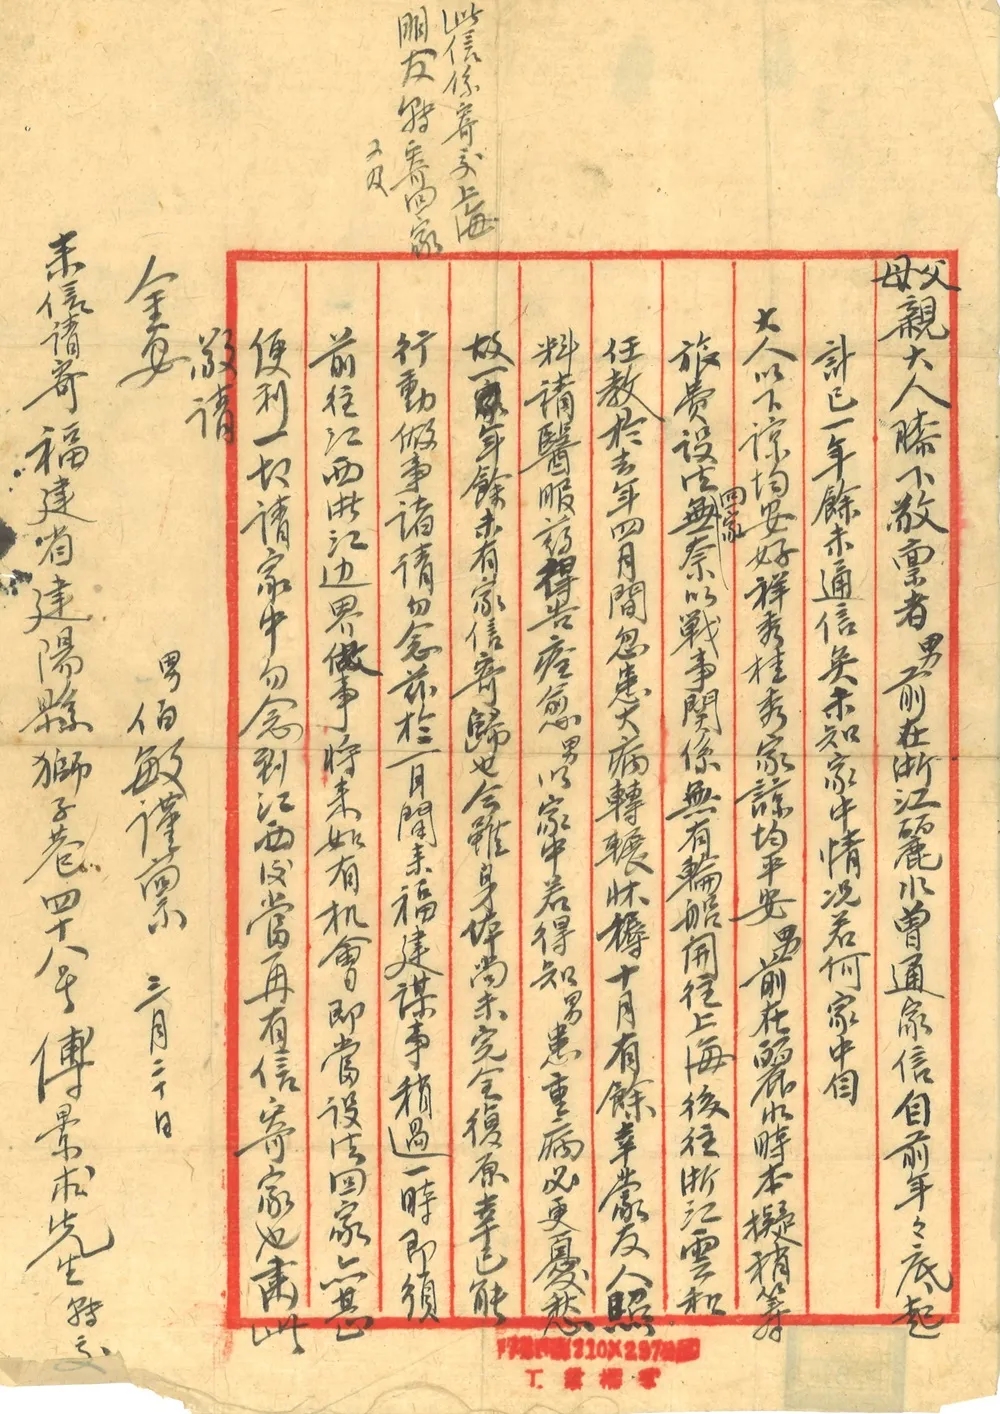 父母親大人膝下敬禀者男前在浙江麗水曾通家信自前年年底起
計已一年餘未通信矣未知家中情况若何家中自
大人以下諒均安好祥秀桂秀家諒均平安男前在麗水時本擬稍籌
旅費設法回家無奈以戰事関係無有輪船開往上海後往浙江雲和
任教於去年四月間忽患大病轉輾牀褥十月有餘幸蒙友人照
料請醫服药得告痊愈男以家中若得知男患重病必更憂愁
故一年餘未有家信寄歸也今雖身体尚未完全復原幸已能
行動做事諸請勿念兹於一月間来福建謀事稍過一時即須
前往江西浙江边界做事将来如有机會即當設法回家亦甚
便利一切請家中勿念到江西後當再有信寄家也肅此
敬請
金安
男伯敏謹禀 三月二十日
来信請寄福建省建陽縣獅子巷四十八号傅景求先生轉交
此信係寄交上海
朋友轉寄回家
又及